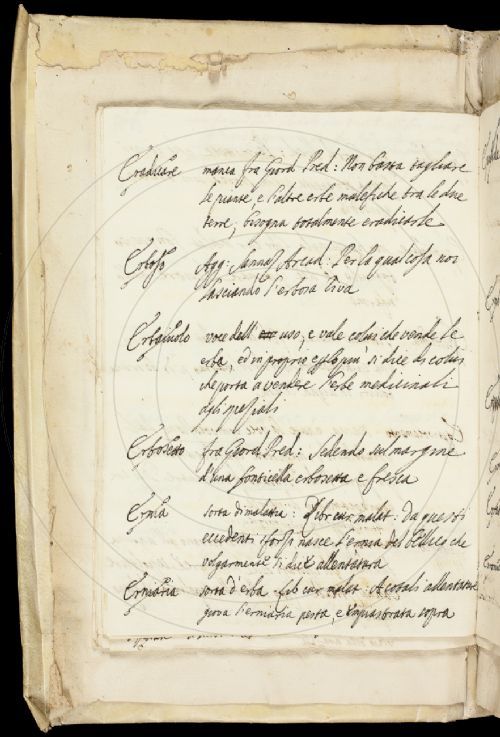 Eradicare manca fra Giord. Pred: Non basta tagliare
le piante, e l'altre erbe malefiche tra le due
terre, bisogna totalmente eradicarle
Erboso Agg: Sannaz Arcad: Per la qual cosa noi
lasciando l'erbosa riva
Erbaiuolo voce dell' uso, e vale colui che vende le
erbe, ed in proprio e più si dice di colui
che porta a vendere l'erbe medicinali
agli speziali
Erbosetto fra Giord Pred: Sedendo sul margine
d'una fonticella erbosetta e fresca
Ernia sorta di malattia: Libr cur malat: Da questi
eccedenti sforzi nasce l'ernia del bellico che
volgarmente si dice allentatura
Erniaria sorta d'erba. Lib cur malat. A cotali allentature
giova l'erniaria pesta, e sopra